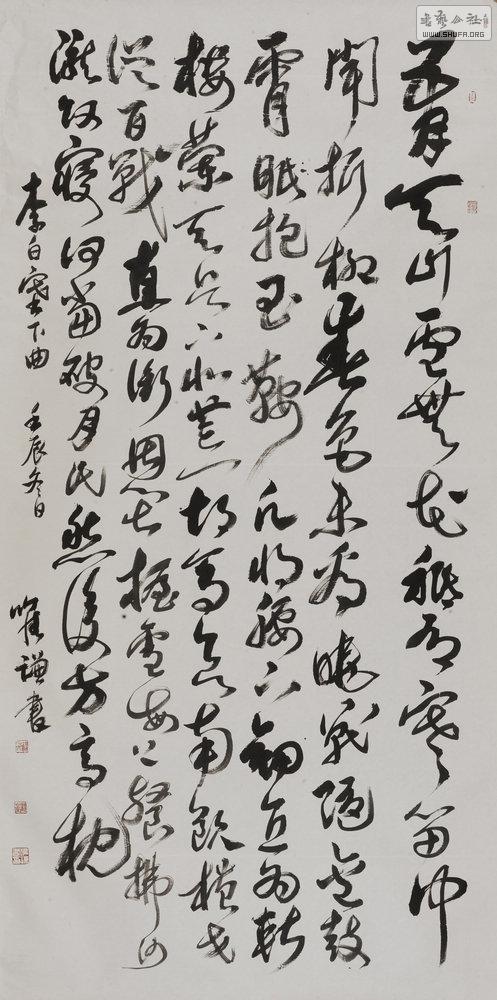 五月天山雪無花祇有寒笛中
聞折柳春色未看曉戰隨金鼓
宵眠抱玉鞍願將腰下劍直為斬
樓蘭天兵下北荒胡馬欲南飲橫戈
從百戰直為銜恩甚握雪海上餐拂沙
隴頭寢何當破月氏然後方高枕
李白塞下曲 壬辰冬日
唯謙書
書藝公社
WWW.SHUFA.ORG